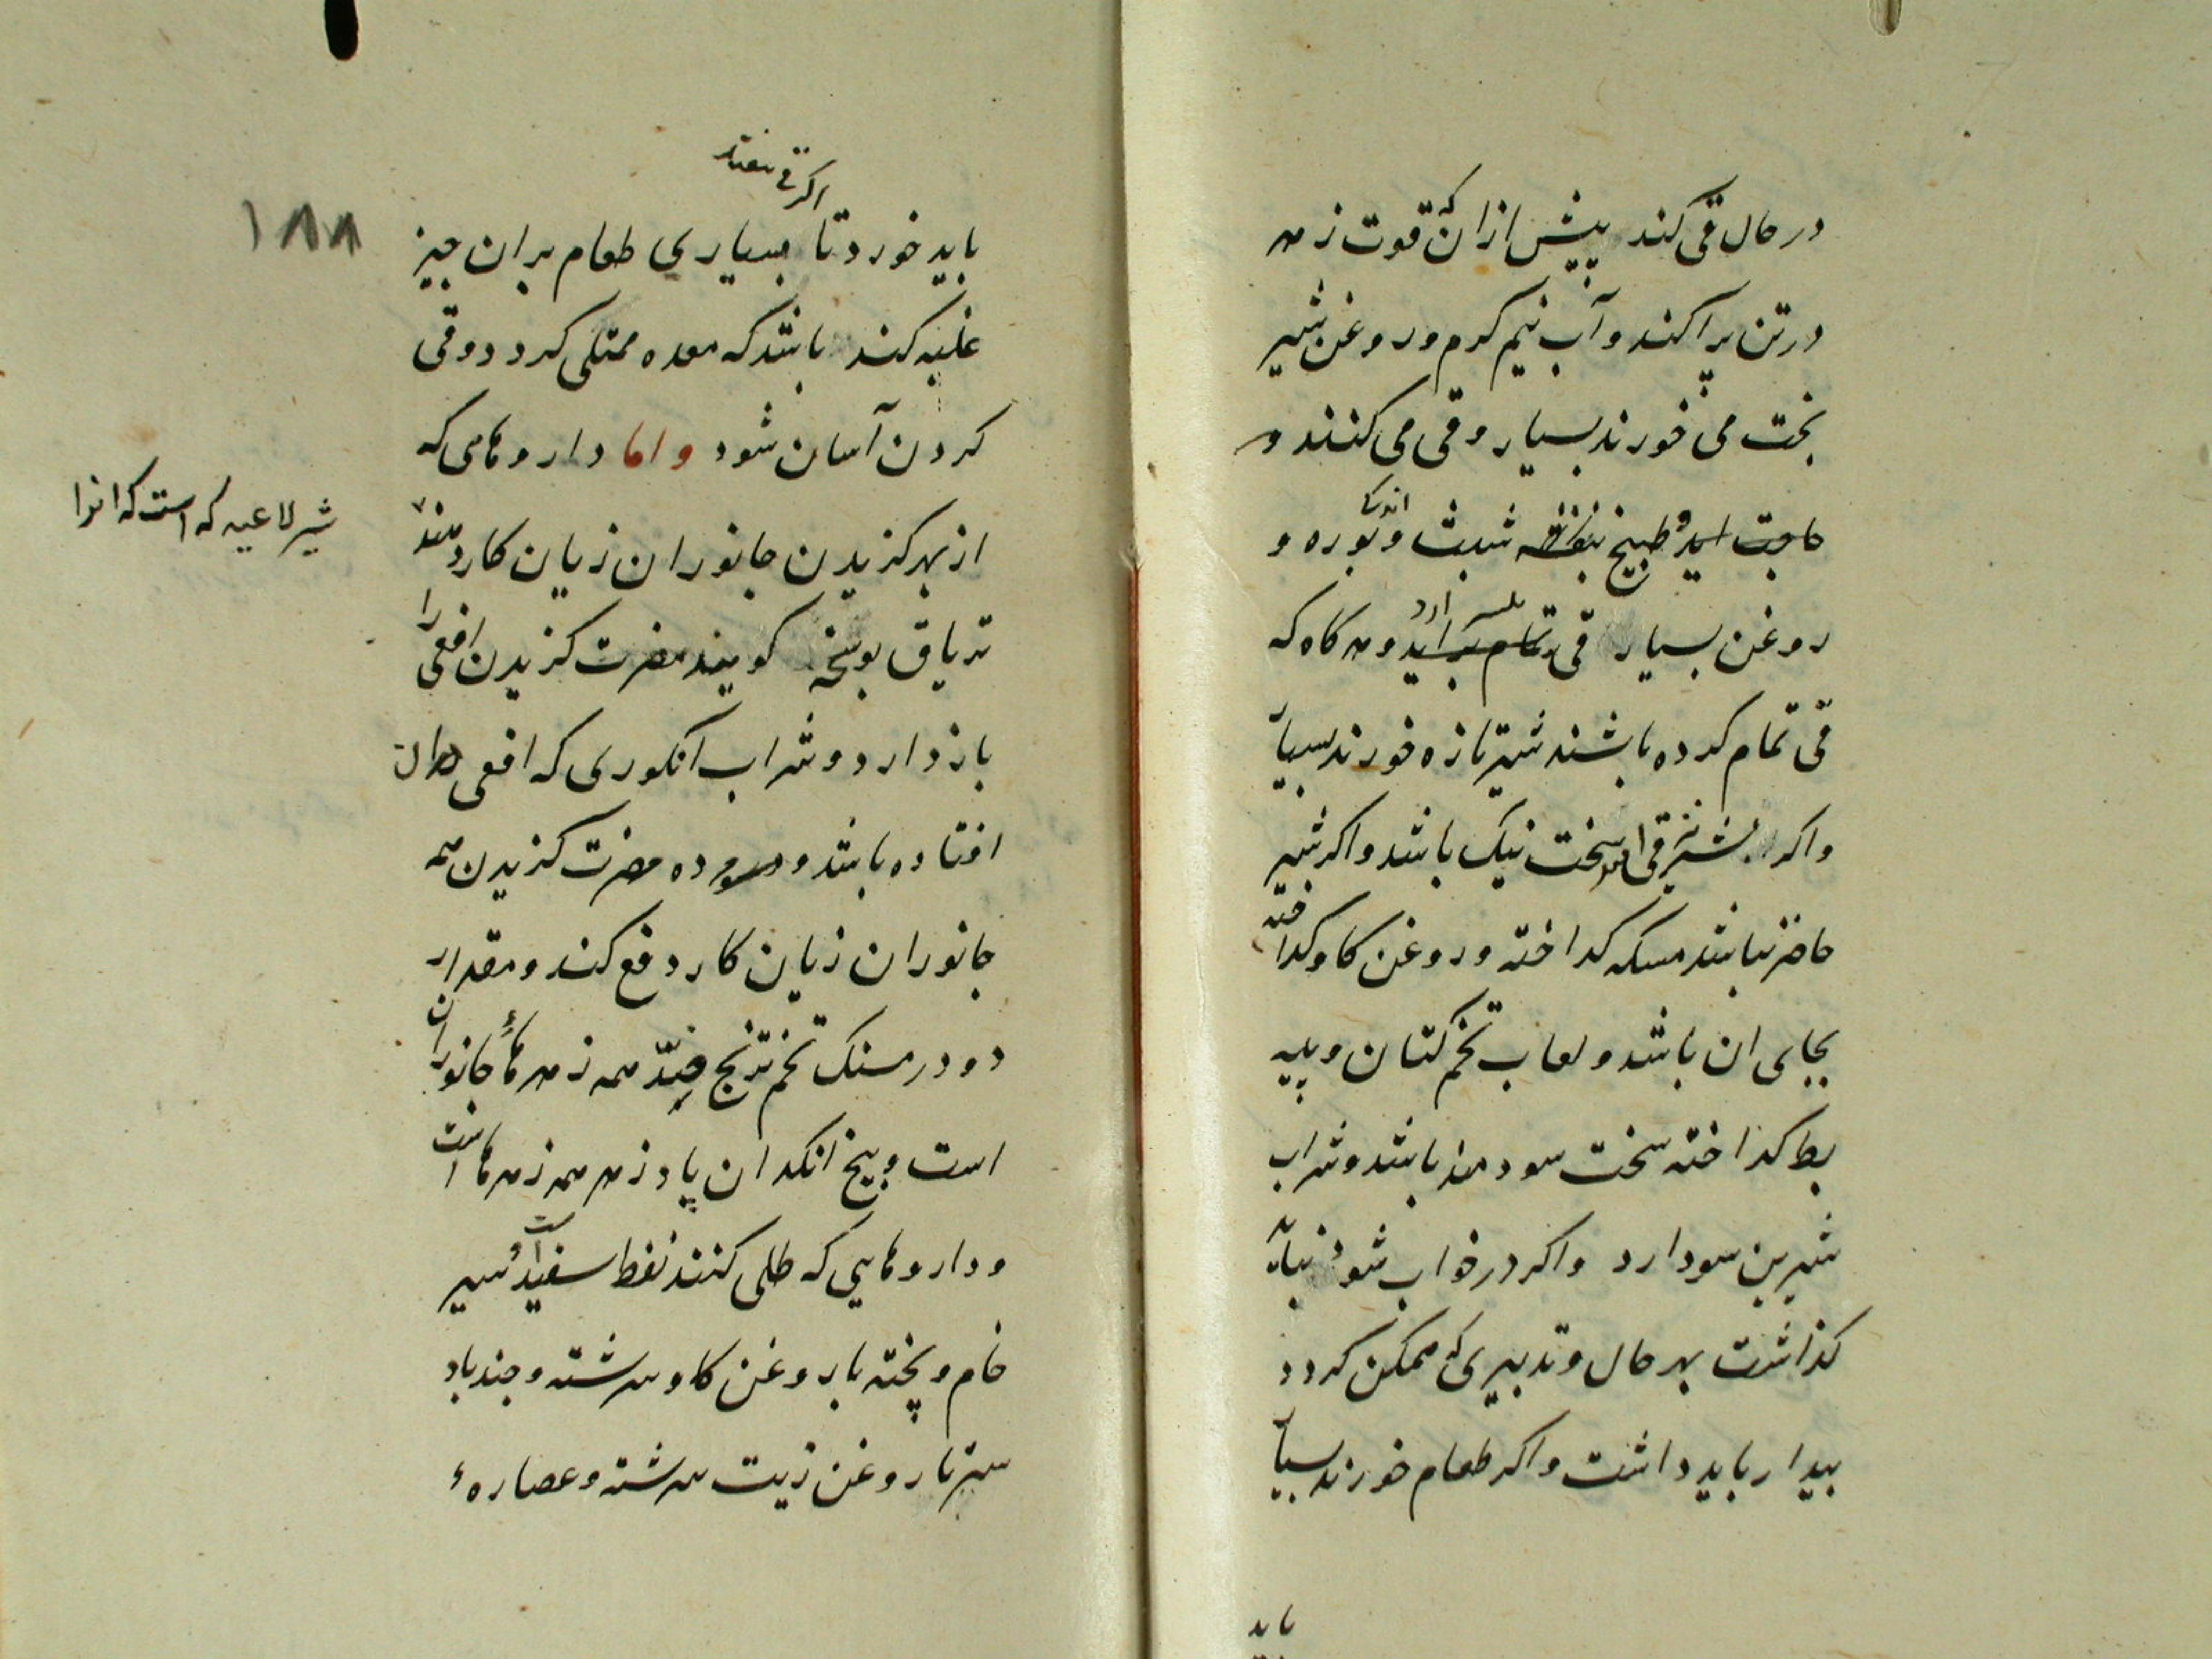 در حال قی کند پیش از ان که قوت زهر
در تن پراکند و آب نیم کرم و روغن شیر
بخت می خورند بسیار و قی می کنند و
حاجت اید و طبیخ شبث و اندکی بوره و
روغن بسیار قی تمام بر اید و هر کاه که
قی تمام کرده باشند شیر تازه خورند بسیار
واکر شیر قی افتد سخت نیک باشد واکر شیر
حاضر نباشد مسکه کداخته و روغن کاو کداخته
بجای ان باشد و لعاب تخم کتان و پیه
بط کداخته سخت سودمند باشد و شراب
شیرین سود دارد واکر در خواب شود نباید
کذاشت بهر حال و تدبیری که ممکن کردد
بیدار باید داشت واکر طعام خورند بسیار
باید
۱۸۸
اکر قی نیفتد
باید خورد تا بسیاری طعام بر ان چیز
غلبه کند باشد که معده ممتلی کردد و قی
کردن آسان شود و اما داروهای که
از بهر کزیدن جانوران زیان کار دهند
شیر لاعیه که است که انرا
تریاق بوشنجه کویند مضرت کزیدن افعی را
باز دارد و شراب انکوری که افعی دران
افتاده باشد و مرده مضرت کزیدن همه
جانوران زیان کار دفع کند و مقدار
دو درمسنک تخم ترنج ضِدّ همه زهرهاء جانوران
است و بیخ انکدان پادزهر همه زهرها است
و داروهایی که طلی کنند نفط سفید است و سیر
خام و پخته با روغن کاو سرشته و جندباد
ستر با روغن زیت سرشته و عصارهء